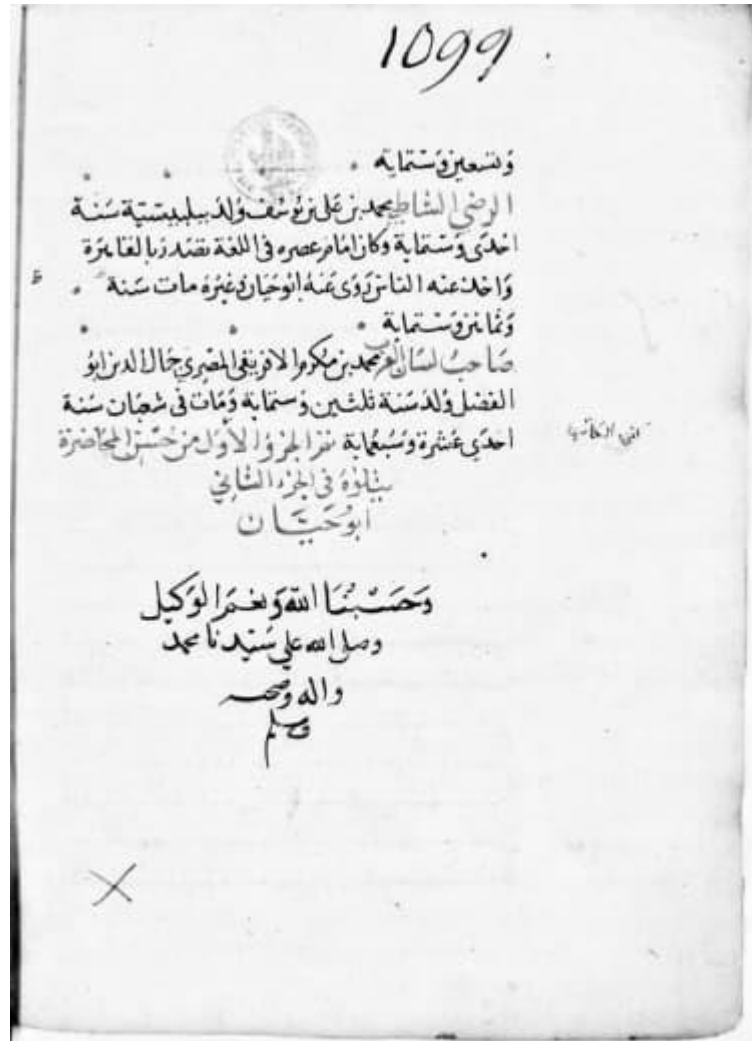 1099
وتسعين وستماية
الرضي الشاطبي محمد بن علي بن يوسف ولد ببلنسية سنة
احدى وستماية وكان امام عصره في اللغة تصدر بالقاهرة
واخذ عنه الناس روى عنه ابو حيان وغيره مات سنة
وثمانين وستماية
صاحب لسان العرب محمد بن مكرم الافريقي المصري جمال الدين ابو
الفضل ولد سنة ثلثين وستماية ومات في شعبان سنة
احدى عشرة وسبعماية تم الجزؤ الأول من حسن المحاضرة
يتلوه في الجزء الثاني
ابو حيان
وحسبنا الله ونعم الوكيل
وصلى الله على سيدنا محمد
واله وصحبه
وسلم